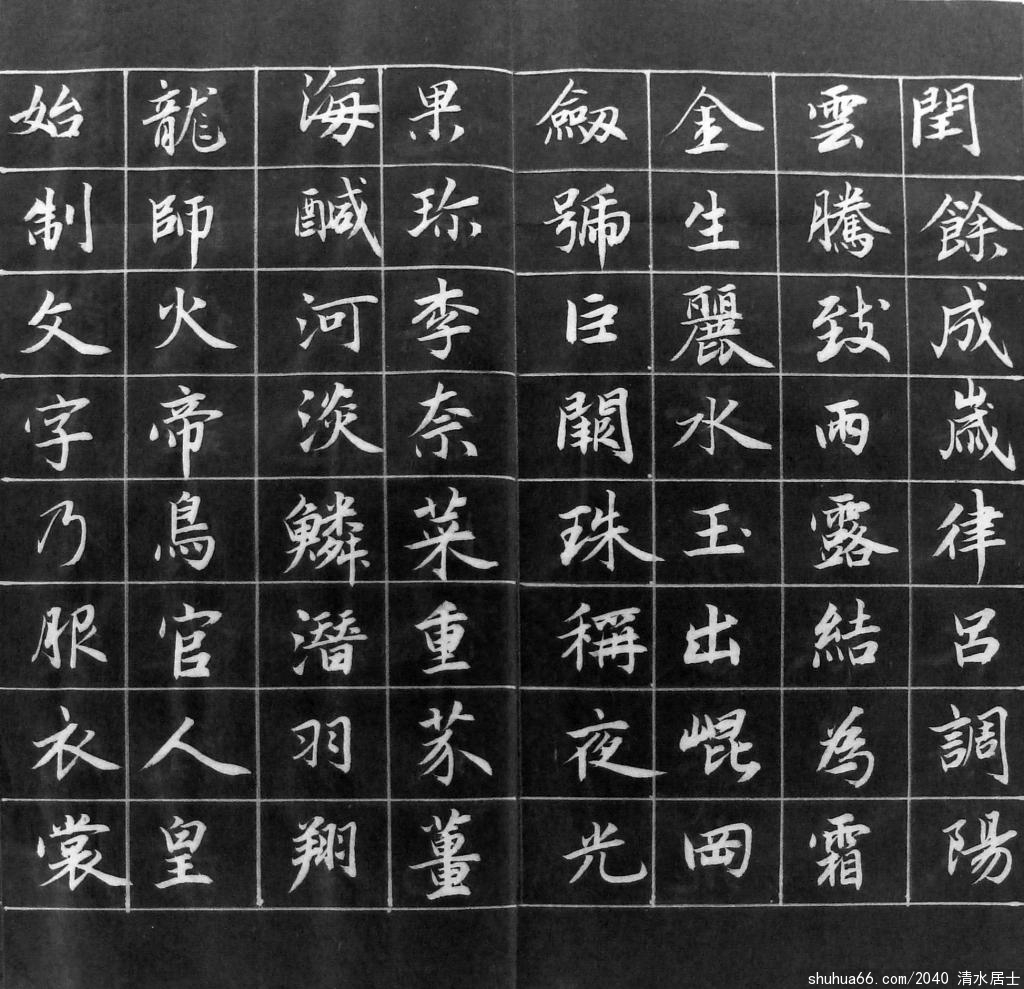 閏餘成歲律呂調陽
雲騰致雨露結為霜
金生麗水玉出崐岡
劔號巨闕珠稱夜光
果珎李柰菜重芥薑
海鹹河淡鱗潛羽翔
龍師火帝鳥官人皇
始制文字乃服衣裳
shuhua66.com/2040 清水居士